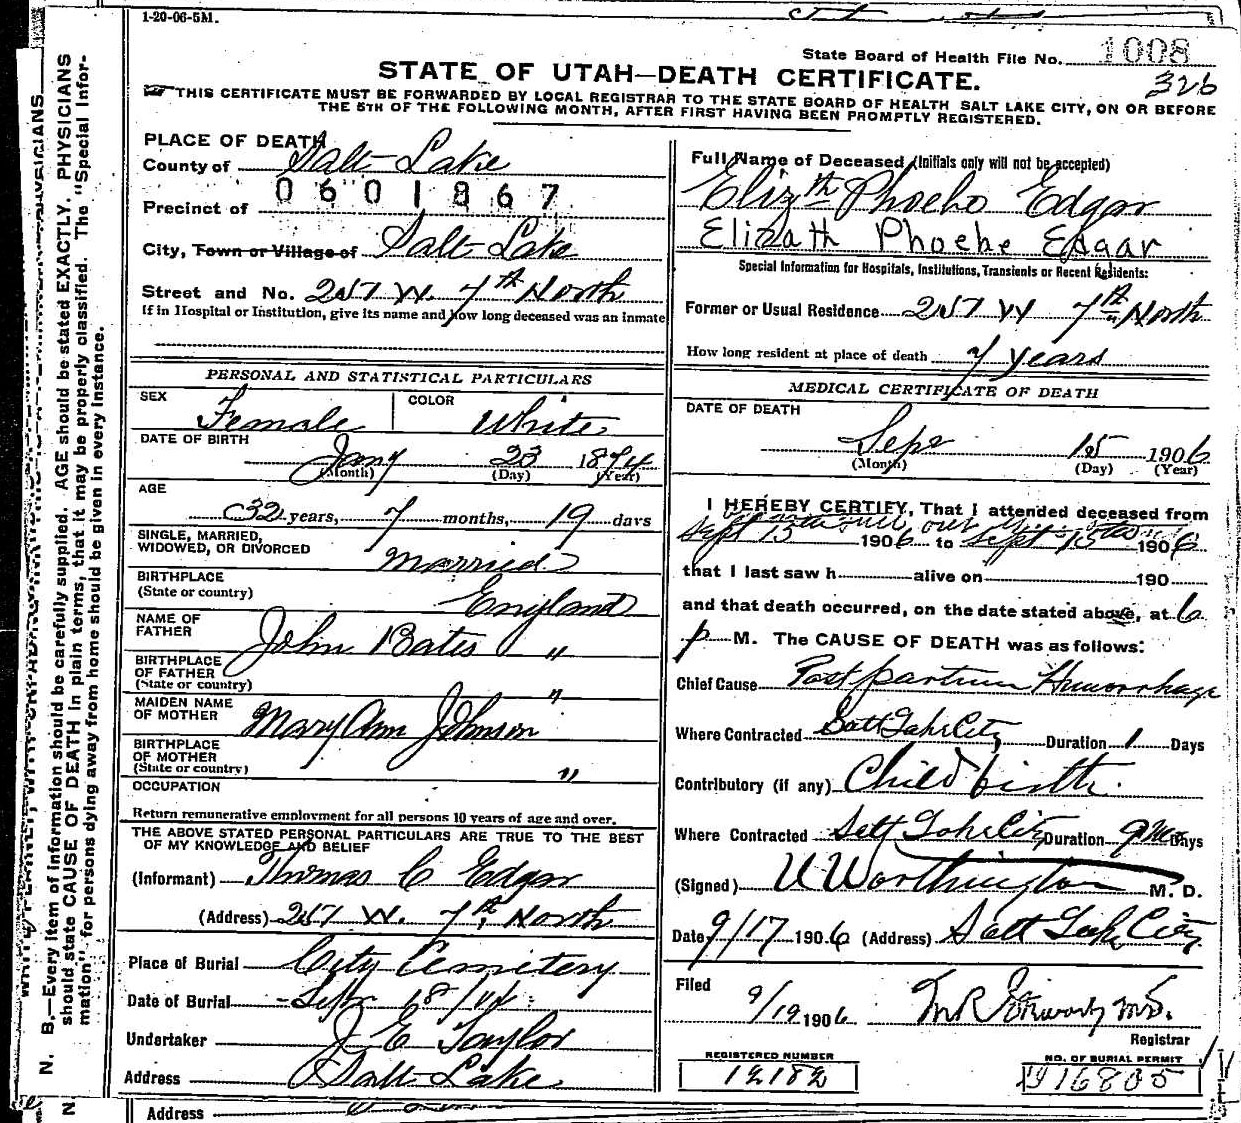 1-20-06-5M.
State Board of Health File No. 1008
326
STATE OF UTAH—DEATH CERTIFICATE.
THIS CERTIFICATE MUST BE FORWARDED BY LOCAL REGISTRAR TO THE STATE BOARD OF HEALTH SALT LAKE CITY, ON OR BEFORE
THE 5TH OF THE FOLLOWING MONTH, AFTER FIRST HAVING BEEN PROMPTLY REGISTERED.
PLACE OF DEATH
County of Salt Lake
0601867
Precinct of
City, Town or Village of Salt Lake
Street and No. 257 W. 7th North
If in Hospital or Institution, give its name and how long deceased was an inmate
PERSONAL AND STATISTICAL PARTICULARS
SEX Female COLOR White
DATE OF BIRTH
Jany 23 1874
(Month) (Day) (Year)
AGE
32 years, 7 months, 19 days
SINGLE, MARRIED,
WIDOWED, OR DIVORCED married
BIRTHPLACE
(State or country) England
NAME OF
FATHER John Bates "
BIRTHPLACE
OF FATHER
(State or country) "
MAIDEN NAME
OF MOTHER Mary Ann Johnson
BIRTHPLACE
OF MOTHER
(State or country) "
OCCUPATION
Return remunerative employment for all persons 10 years of age and over.
THE ABOVE STATED PERSONAL PARTICULARS ARE TRUE TO THE BEST
OF MY KNOWLEDGE AND BELIEF
(Informant) Thomas C Edgar
(Address) 257 W. 7th North
Place of Burial City Cemetery
Date of Burial Sept 18
Undertaker J. E Taylor
Address Salt Lake
Full Name of Deceased (Initials only will not be accepted)
Elizth Phoebe Edgar
Elizath Phoebe Edgar
Special Information for Hospitals, Institutions, Transients or Recent Residents:
Former or Usual Residence 257 W 7th North
How long resident at place of death 7 years
MEDICAL CERTIFICATE OF DEATH
DATE OF DEATH
Sept 15 1906
(Month) (Day) (Year)
I HEREBY CERTIFY, That I attended deceased from
Sept 15 1906 to Sept 15 1906
that I last saw h alive on 190
and that death occurred, on the date stated above, at 6
p M. The CAUSE OF DEATH was as follows:
Chief Cause Post partum Hemorrhage
Where Contracted Salt Lake City Duration 1 Days
Contributory (if any) Child birth.
Where Contracted Salt Lake City Duration 9 mos Days
(Signed) U Worthington M. D.
Date 9/17 1906 (Address) Salt Lake City
Filed
9/19 1906
Registrar
REGISTERED NUMBER
12182
NO. OF BURIAL PERMIT
16805
Address
N. B.—Every item of information should be carefully supplied. AGE should be stated EXACTLY. PHYSICIANS
should state CAUSE OF DEATH in plain terms, that it may be properly classified. The "Special Infor-
mation" for persons dying away from home should be given in every instance.